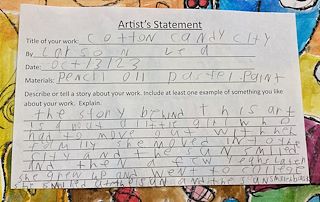 Artist's Statement
Title of your work: cotton candy city
By
Date: Oct/3/23
Materials: Pencil oil Pastel Paint
Describe or tell a story about your work. Include at least one example of something you like
about your work. Explain.
the story behind this art
is about a little girl who
had to move out with her
family she moved into the
city and the sun smiled
And then a few years later
she grew up and went to college
she smiled at the sun and the sun smiled back